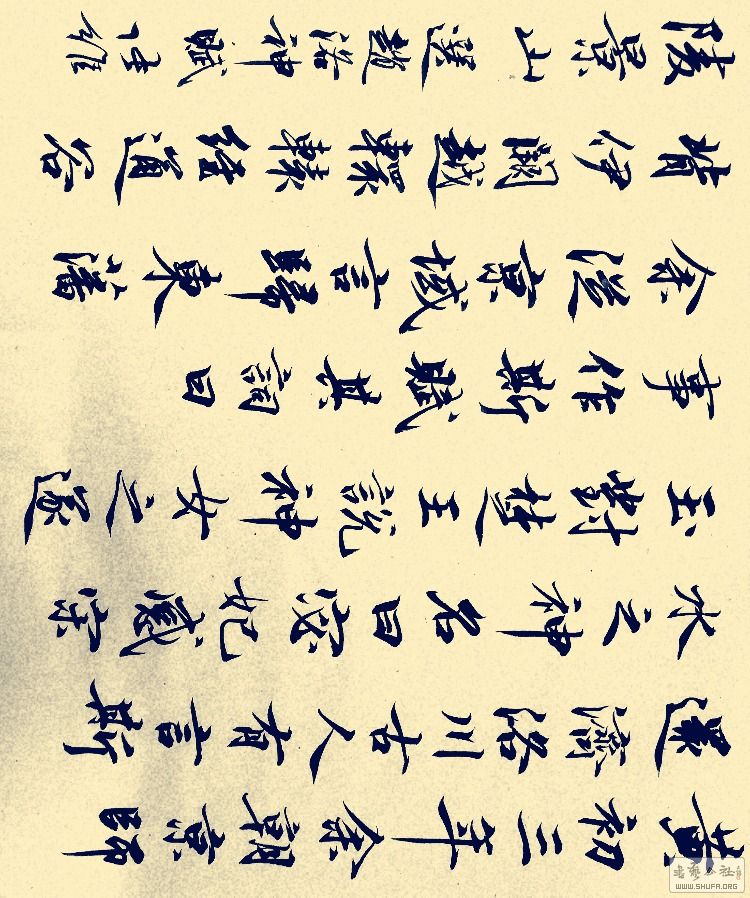 黄初三年余朝京師
還濟洛川古人有言斯
水之神名曰宓妃感宋
玉對楚王說神女之遂
事作斯賦其詞曰
余從京域言歸東藩
背伊闕越轘轅經通谷
陵景山 選趙洛神賦
书艺公社
WWW.SHUFA.ORG